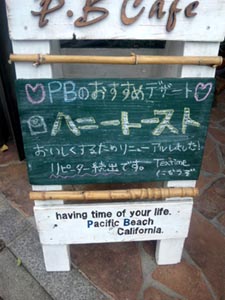 P.B Cafe
PBのおすすめデザート
ハニートースト
おいしくするためリニューアルしました!
リピーター続出です。
Teatime
にどうぞ
having time of your life.
Pacific Beach
California.